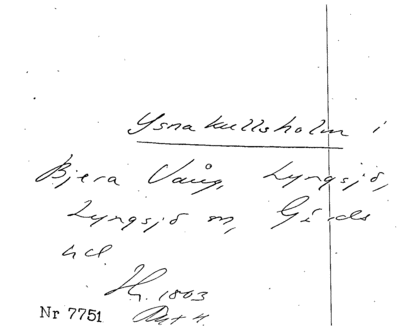 Ysnakullsholm i
Bjera Vång, Lyngsjö,
Lyngsjö sn, Gärds
hd.
1803
Nr 7751